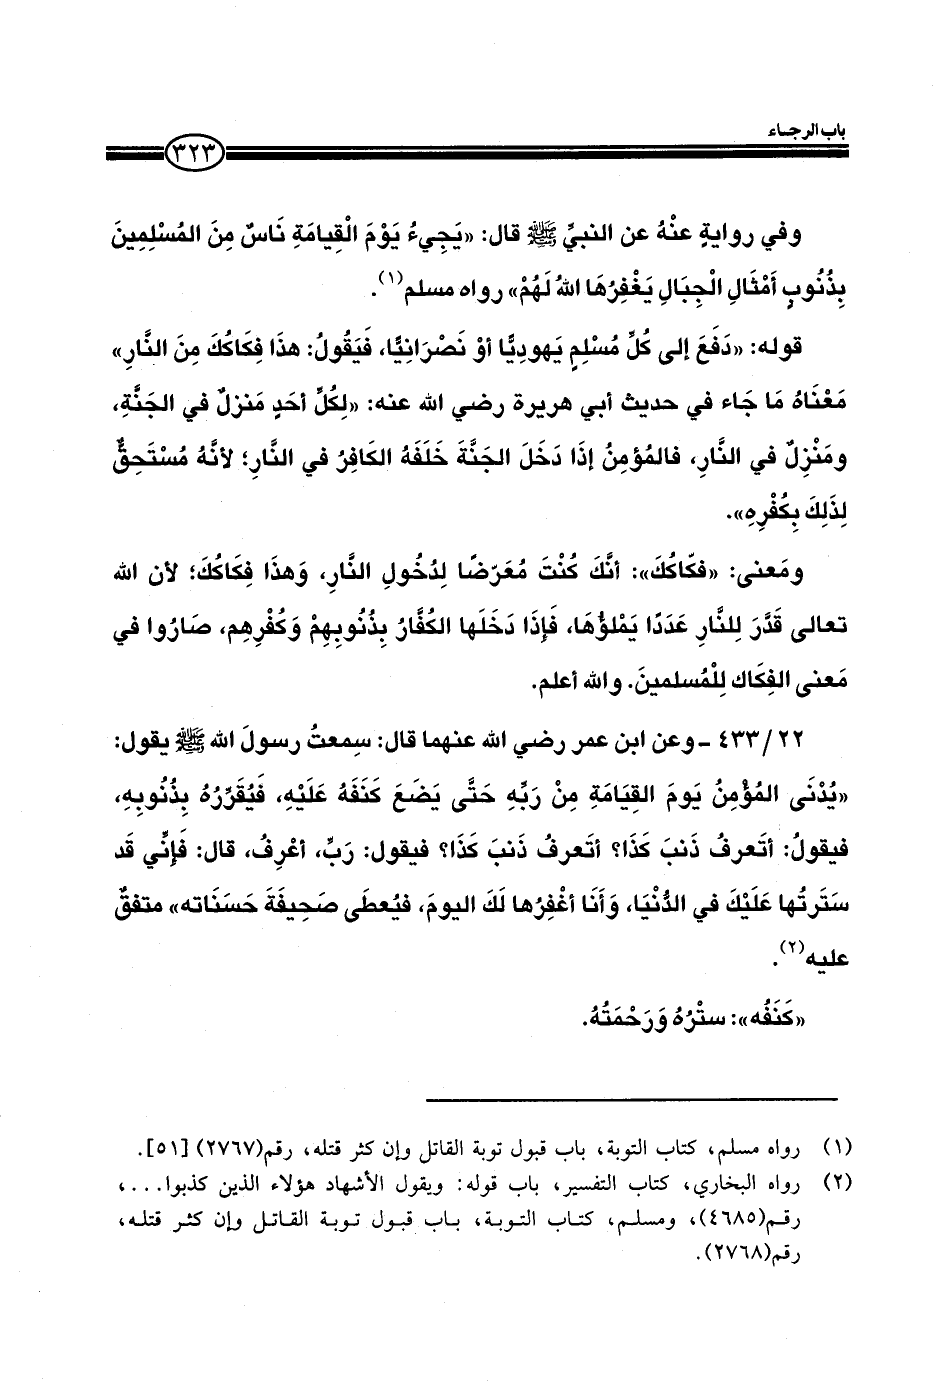 باب الرجاء
٣٢٣
وفي روايةٍ عنْهُ عن النبيِّ ﷺ قال: «يَجِيءُ يَوْمَ الْقِيامَةِ نَاسٌ مِنَ المُسْلِمِينَ
بِذُنُوبٍ أَمْثَالِ الْجِبَالِ يَغْفِرُهَا اللهُ لَهُمْ» رواه مسلم(١).
قوله: «دَفَعَ إلى كُلِّ مُسْلِمٍ يَهوديًّا أوْ نَصْرَانِيًّا، فَيَقُولُ: هذَا فِكَاكُكَ مِنَ النَّارِ»
مَعْنَاهُ مَا جَاء في حديث أبي هريرة رضي الله عنه: «لِكُلِّ أحَدٍ مَنزلٌ في الجَنَّةِ،
ومَنْزِلٌ في النَّارِ، فالمُؤمِنُ إذَا دَخَلَ الجَنَّةَ خَلَفَهُ الكَافِرُ في النَّارِ؛ لأنَّهُ مُسْتَحِقٌّ
لِذَلِكَ بِكُفْرِهِ».
ومَعنى: «فكّاكُكَ»: أنَّكَ كُنْتَ مُعَرَضًا لِدُخُولِ النَّارِ، وَهذَا فِكَاكُكَ؛ لأن الله
تعالى قَدَّرَ لِلنَّارِ عَدَدًا يَمْلؤُهَا، فَإِذَا دَخَلَها الكُفَّارُ بِذُنُوبِهِمْ وَكُفْرِهِم، صَارُوا في
مَعنى الفِكَاك لِلْمُسلمينَ. والله أعلم.
٤٣٣/٢٢ - وعن ابن عمر رضي الله عنهما قال: سمعتُ رسولَ الله ﷺ يقول:
«يُدْنَى المُؤْمِنُ يَومَ القِيَامَةِ مِنْ رَبِّهِ حَتَّى يَضَعَ كَنَفَهُ عَلَيْهِ، فَيُقَرِّرُهُ بِذُنُوبِهِ،
فيقولُ: أتَعرفُ ذَنبَ كَذَا؟ أتَعرفُ ذَنبَ كَذَا؟ فيقول: رَبِّ، أعْرِفُ، قال: فَإنِّي قَد
سَتَرتُها عَلَيْكَ في الدُّنْيَا، وَأَنَا أغْفِرُها لَكَ اليومَ، فيُعطَى صَحِيفَةَ حَسَنَاته» متفقٌ
عليه(٢).
«كَنَفُه»: ستْرُهُ وَرَحْمَتُهُ.
(١) رواه مسلم، كتاب التوبة، باب قبول توبة القاتل وإن كثر قتله، رقم(٢٧٦٧) [٥١].
(٢) رواه البخاري، كتاب التفسير، باب قوله: ويقول الأشهاد هؤلاء الذين كذبوا...،
رقم(٤٦٨٥)، ومسلم، كتاب التوبة، باب قبول توبة القاتل وإن كثر قتله،
رقم(٢٧٦٨).